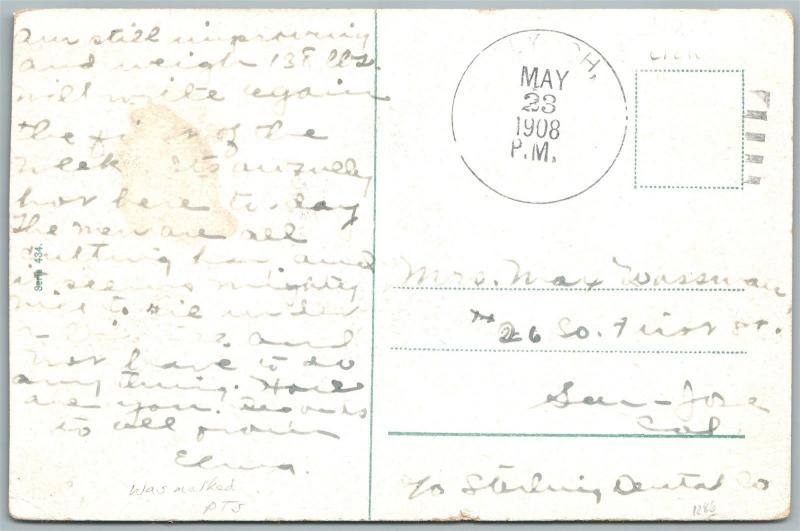 Am still improving
and weigh 138 lbs.
Will write again
the first of the
week. Its awfully
hot here to-day
The men are all
cutting hay and
it seems mighty
nice to lie under
and
not have to do
anything. How
are you. Regards
to all from
Elma.
Was marked
PTS
Serie 434.
MAY
23
1908
P.M.
Mrs. Max Wassman
# 26 So. First St.
San-Jose
Cal.
c/o Sterling Dental Co
1286